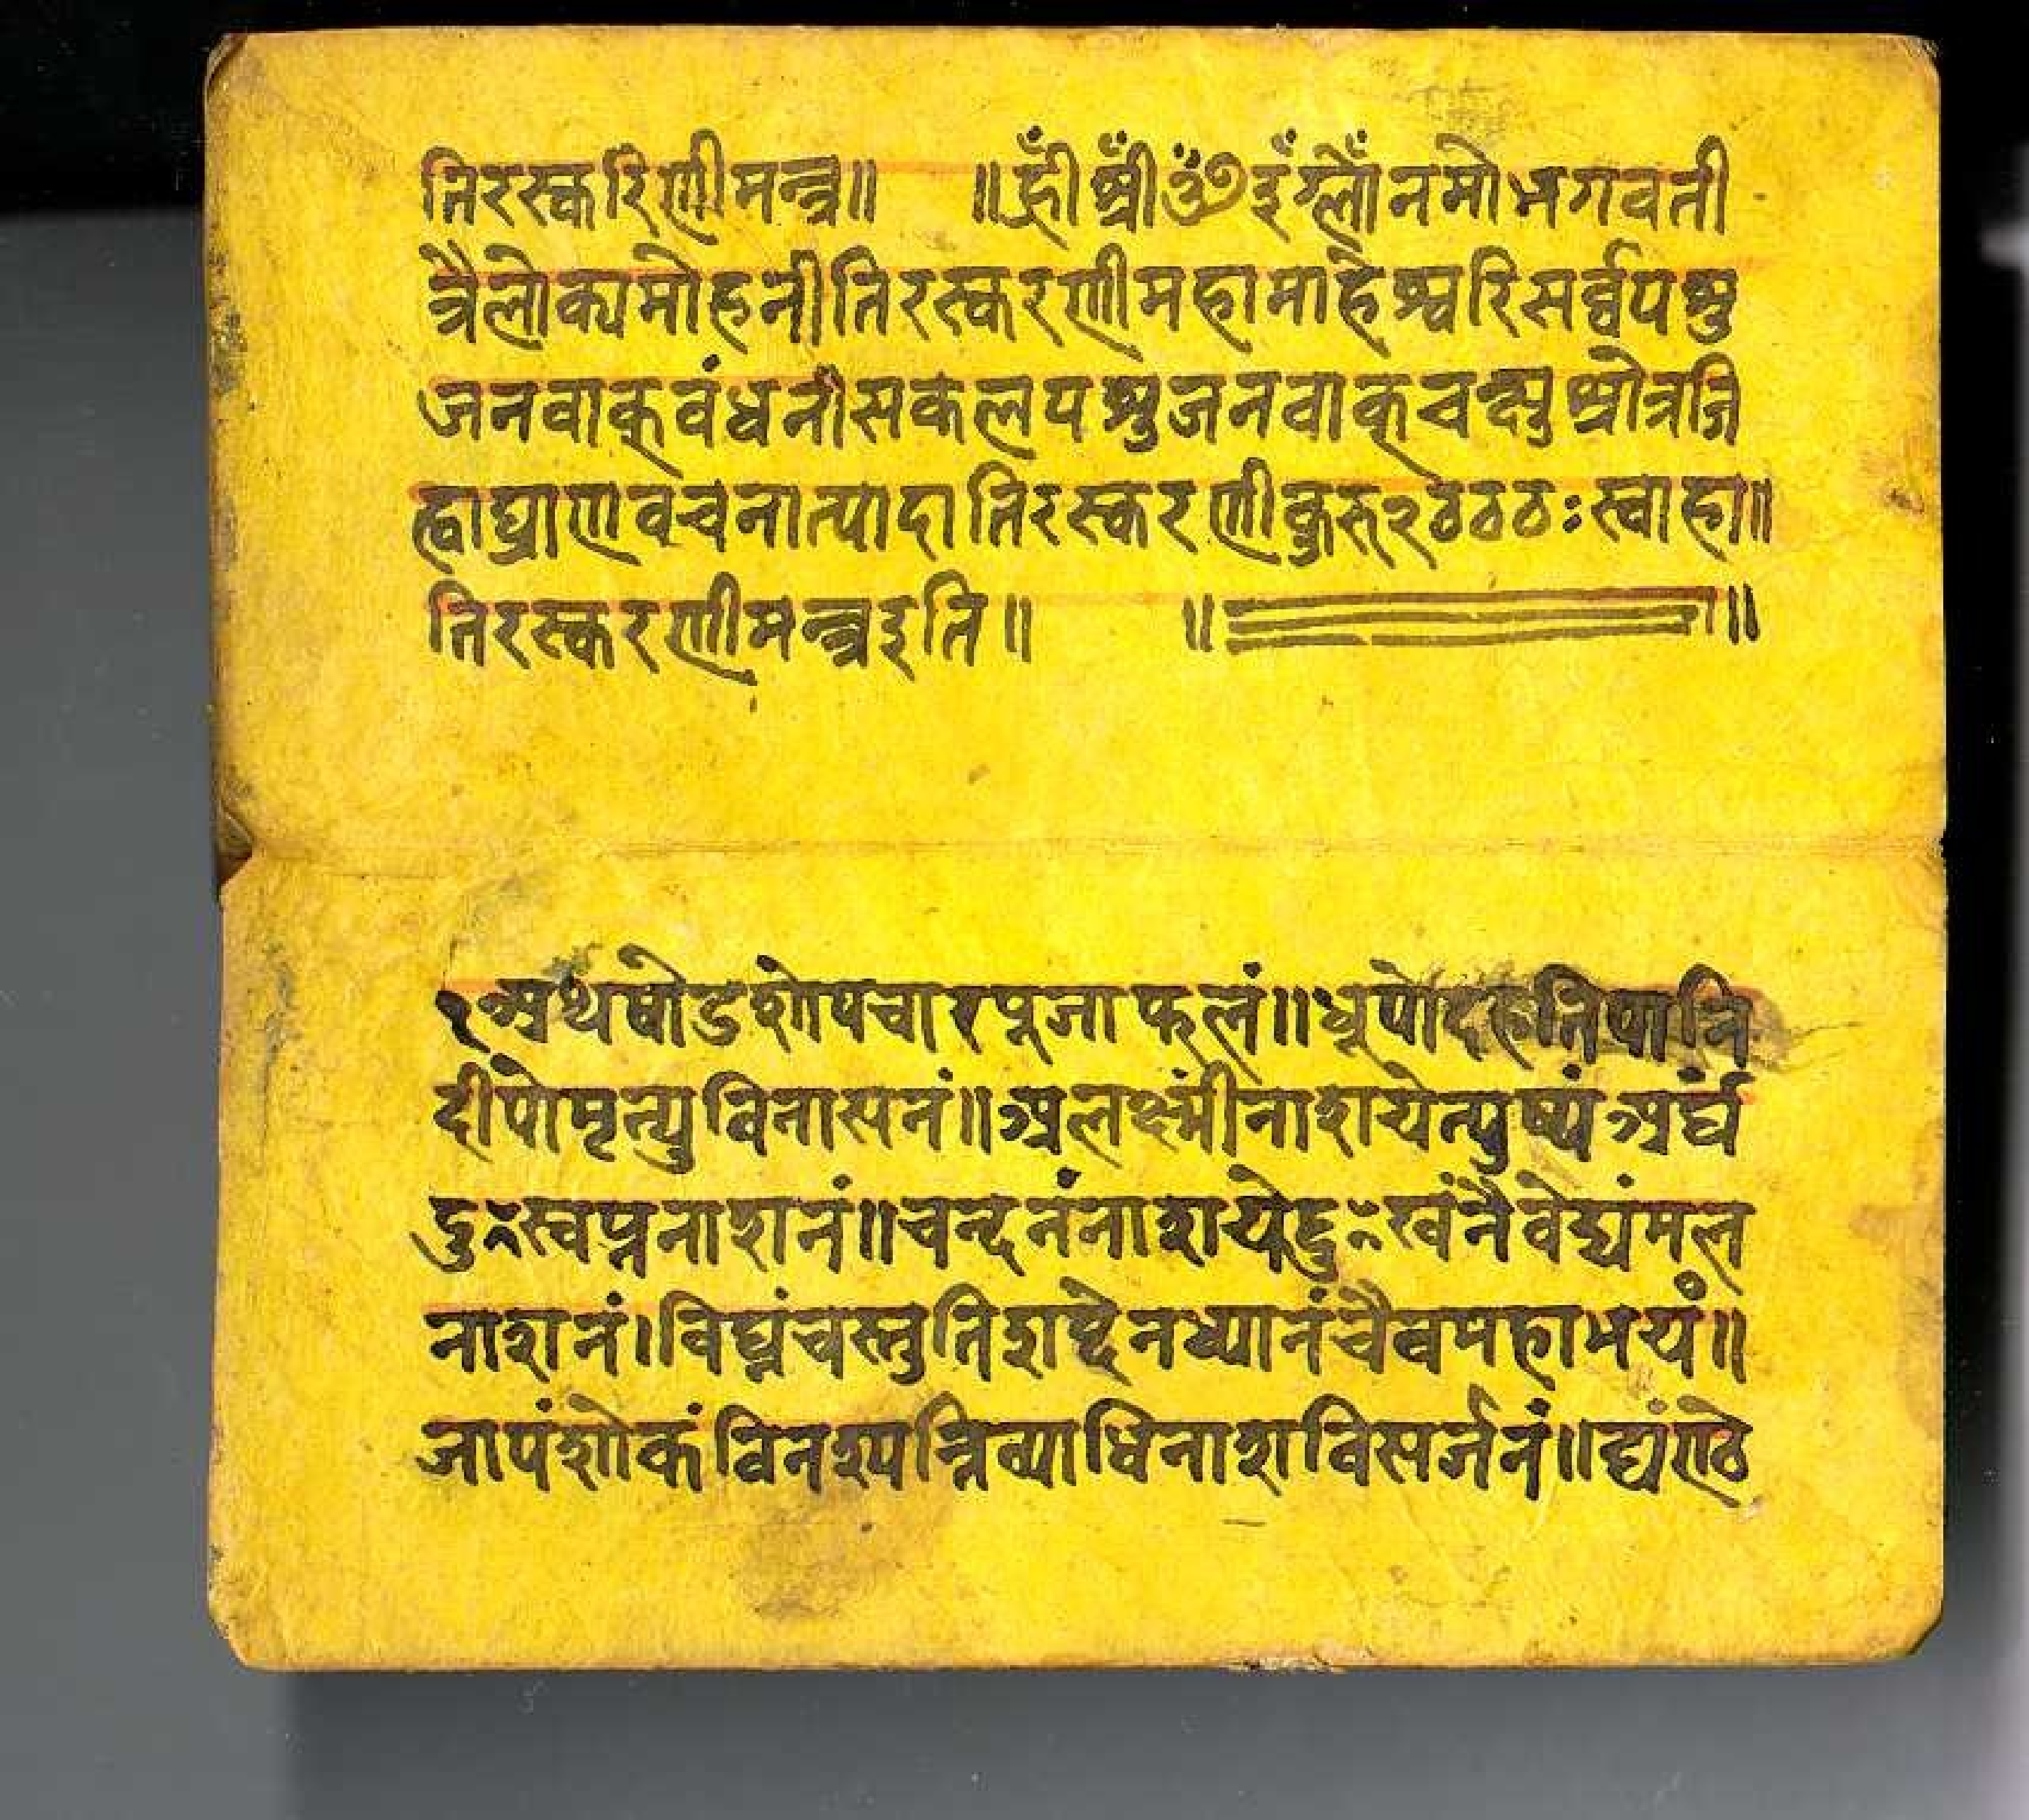 तिरस्करिणीमन्त्र॥ ॥ह्रीँ श्रीँ ॐ इँ ग्लौँ नमो भगवती
त्रैलोक्यमोहनीतिरस्करणीमहामाहेश्वरिसर्व्वपशु
जनवाक्वंधनीसकलपशुजनवाक्चक्षुश्रोत्रजि
ह्वाघ्राणवचनात्पादातिरस्करणीकुरु२ठठठःस्वाहा॥
तिरस्करणीमन्त्रइति॥ ॥ ॥
१अथषोडशोपचारपूजाफलं॥धूपोदहतिपानि
दीपोमृत्युविनासनं॥अलक्ष्मींनाशयेत्पुष्पंअर्घं
दुःस्वप्ननाशनं॥चन्दनंनाशयेद्दुःखंनैवेद्यंमल
नाशनं।विघ्नंचस्तुतिशब्देनध्यानंचैवमहाभयं॥
जापंशोकंविनश्यन्तिव्याधिनाशविसर्जनं॥द्यंण्ठे